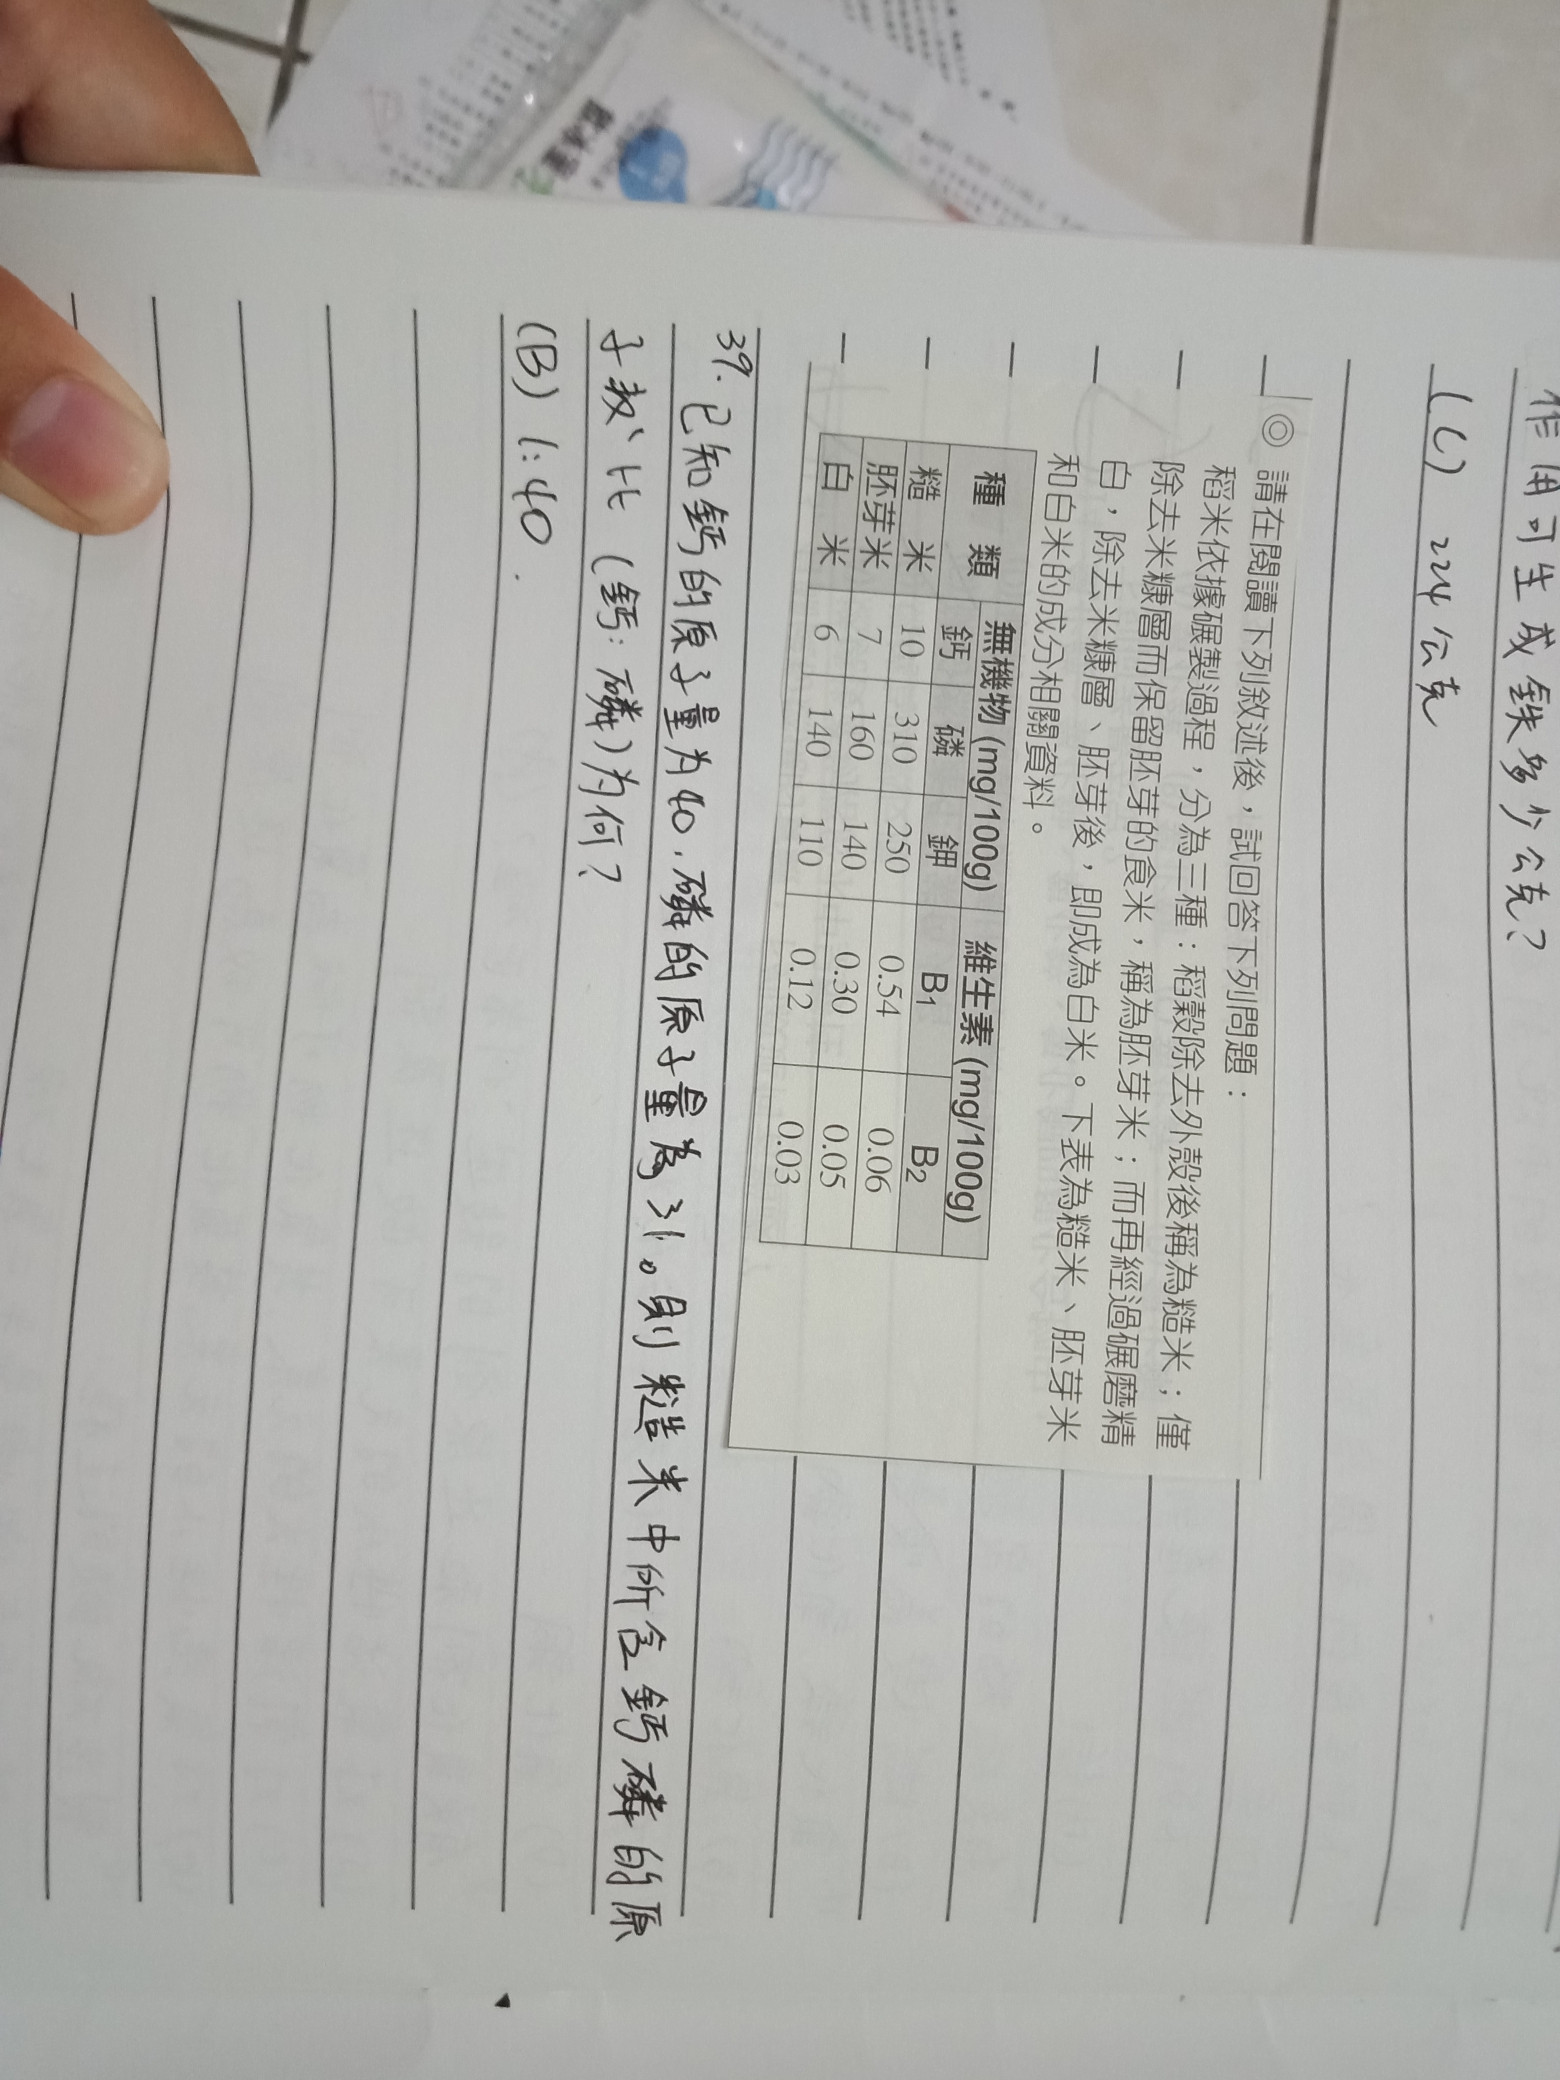 作用可生成鐵多少公克？
(C) 224公克
◎ 請在閱讀下列敘述後，試回答下列問題：
稻米依據碾製過程，分為三種：稻穀除去外殼後稱為糙米；僅
除去米糠層而保留胚芽的食米，稱為胚芽米；而再經過碾磨精
白，除去米糠層、胚芽後，即成為白米。下表為糙米、胚芽米
和白米的成分相關資料。
種 類 無機物 (mg/100g) 維生素 (mg/100g)
鈣 磷 鉀 B1 B2
糙 米 10 310 250 0.54 0.06
胚芽米 7 160 140 0.30 0.05
白 米 6 140 110 0.12 0.03
39. 已知鈣的原子量为40，磷的原子量為31。則糙米中所含鈣磷的原
子数比（鈣：磷）为何？
(B) 1:40.